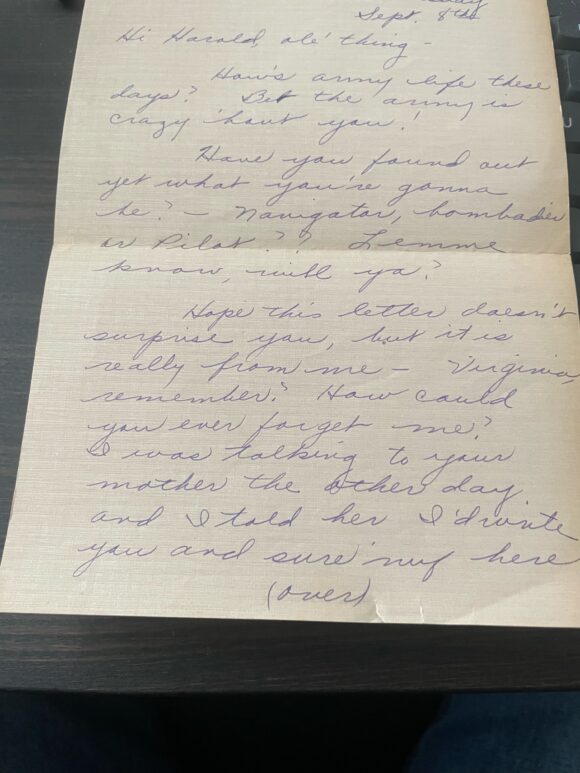 Sept. 8th
Hi Harold, ole' thing -
How's army life these
days? Bet the army is
crazy 'bout you!
Have you found out
yet what you're gonna
be? - Navigator, bombadier
or Pilot?? Lemme
know, will ya?
Hope this letter doesn't
surprise you, but it is
really from me - Virginia,
remember? How could
you ever forget me?
I was talking to your
mother the other day
and I told her I'd write
you and sure 'nuf here
(over)